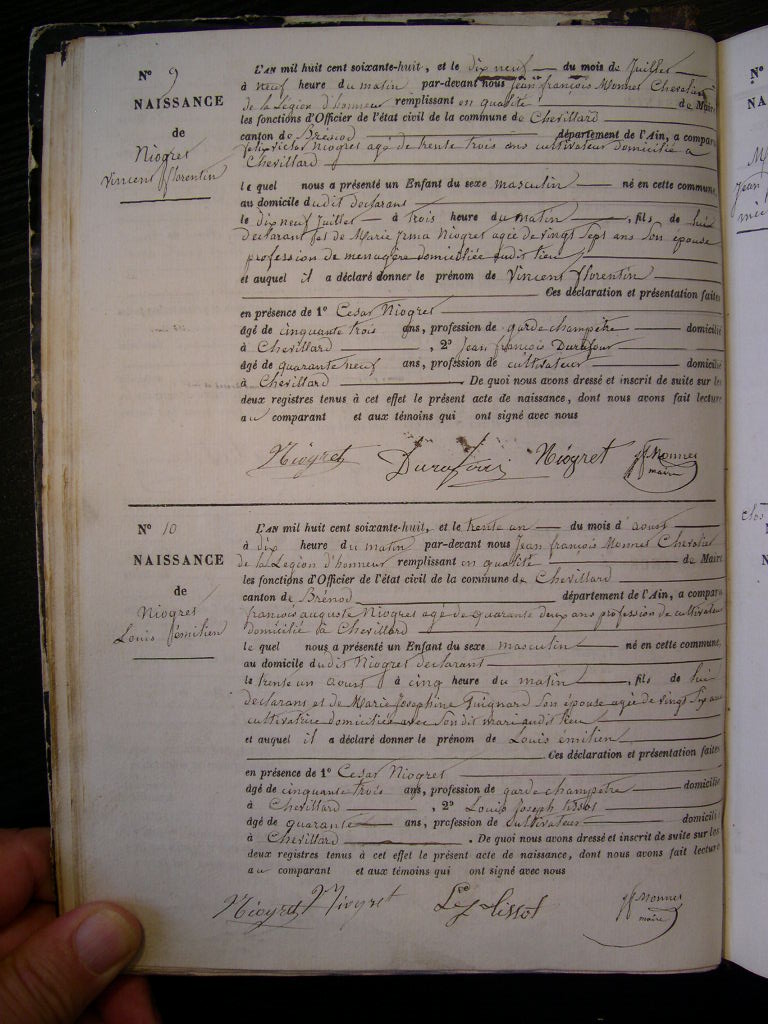 N° 9
NAISSANCE
de
Niogret
Vincent florentin
L'AN mil huit cent soixante-huit, et le dix neuf du mois de Juillet
à neuf heure du matin par-devant nous Jean françois Monnet Chevalier
de la Légion d'honneur remplissant en qualité de Maire
les fonctions d'Officier de l'état civil de la commune de Chevillard
canton de Brénod département de l'Ain, a comparu
felix victor Niogret agé de trente trois ans cultivateur domicilié a
Chevillard
le quel nous a présenté un Enfant du sexe masculin né en cette commune,
au domicile dudit declarant
le dix neuf Juillet à trois heure du matin, fils de lui
declarant et de Marie Irma Niogret agée de vingt sept ans Son épouse
profession de menagère domiciliée audit lieu
et auquel il a déclaré donner le prénom de Vincent florentin
Ces déclaration et présentation faites
en présence de 1° Cesar Niogret
âgé de cinquante trois ans, profession de garde champêtre domicilié
à Chevillard, 2° Jean françois Durafour
âgé de quarante neuf ans, profession de cultivateur domicilié
à Chevillard. De quoi nous avons dressé et inscrit de suite sur les
deux registres tenus à cet effet le présent acte de naissance, dont nous avons fait lecture
au comparant et aux témoins qui ont signé avec nous
Niogret Durafour Niogret Monnet
maire
N° 10
NAISSANCE
de
Niogret
Louis émilien
L'AN mil huit cent soixante-huit, et le trente un du mois d'aout
à dix heure du matin par-devant nous Jean françois Monnet Chevalier
de la Legion d'honneur remplissant en qualité de Maire
les fonctions d'Officier de l'état civil de la commune de Chevillard
canton de Brénod département de l'Ain, a comparu
françois auguste Niogret agé de quarante deux ans profession de cultivateur
domicilié à Chevillard
le quel nous a présenté un Enfant du sexe masculin né en cette commune,
au domicile dudit Niogret declarant
le trente un aout à cinq heure du matin, fils de lui
declarant et de Marie Josephine Guignard Son épouse agée de vingt six ans
cultivatrice domiciliée avec Son dit mari audit lieu
et auquel il a déclaré donner le prénom de Louis émilien
Ces déclaration et présentation faites
en présence de 1° Cesar Niogret
âgé de cinquante trois ans, profession de garde champêtre domicilié
à Chevillard, 2° Louis Joseph
âgé de quarante ans, profession de Cultivateur domicilié
à Chevillard. De quoi nous avons dressé et inscrit de suite sur les
deux registres tenus à cet effet le présent acte de naissance, dont nous avons fait lecture
au comparant et aux témoins qui ont signé avec nous
Niogret Niogret Monnet
maire